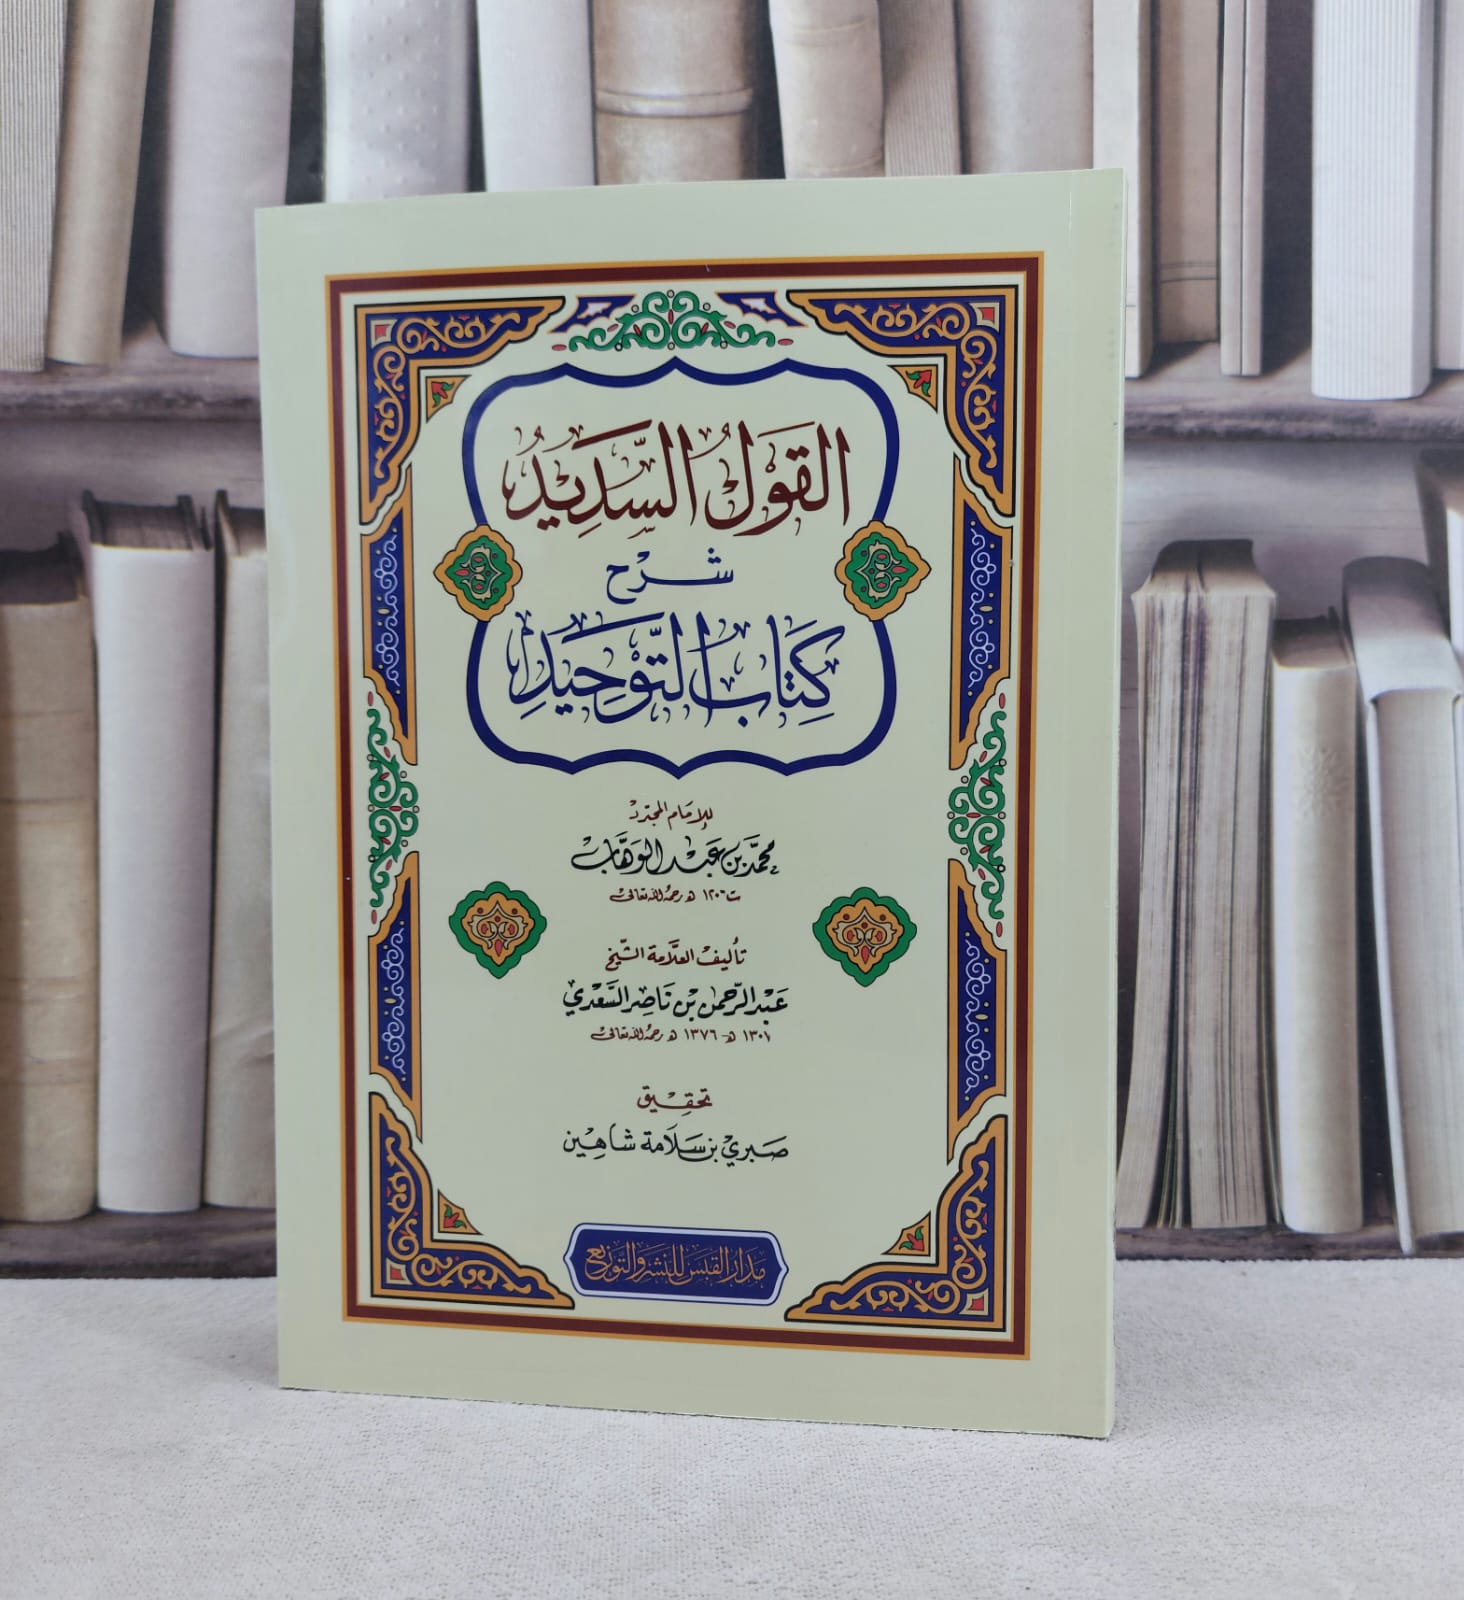 القَوْلُ السَّدِيدُ
شَرْح
كِتَابُ التَّوْحِيدِ
للإمَام المجدد
محمَّد بن عَبْد الوَهَّاب
ت ١٢٠٦ هـ رحمه الله تعالى
تأليف العلَّامة الشيخ
عَبْد الرَّحمن بْن نَاصِر السَّعْدي
١٣٠٧ هـ - ١٣٧٦ هـ رحمه الله تعالى
تحقِيق
صَبري بْن سَلَامَة شاهِين
مَدَار القبَس للنشر والتوزيع